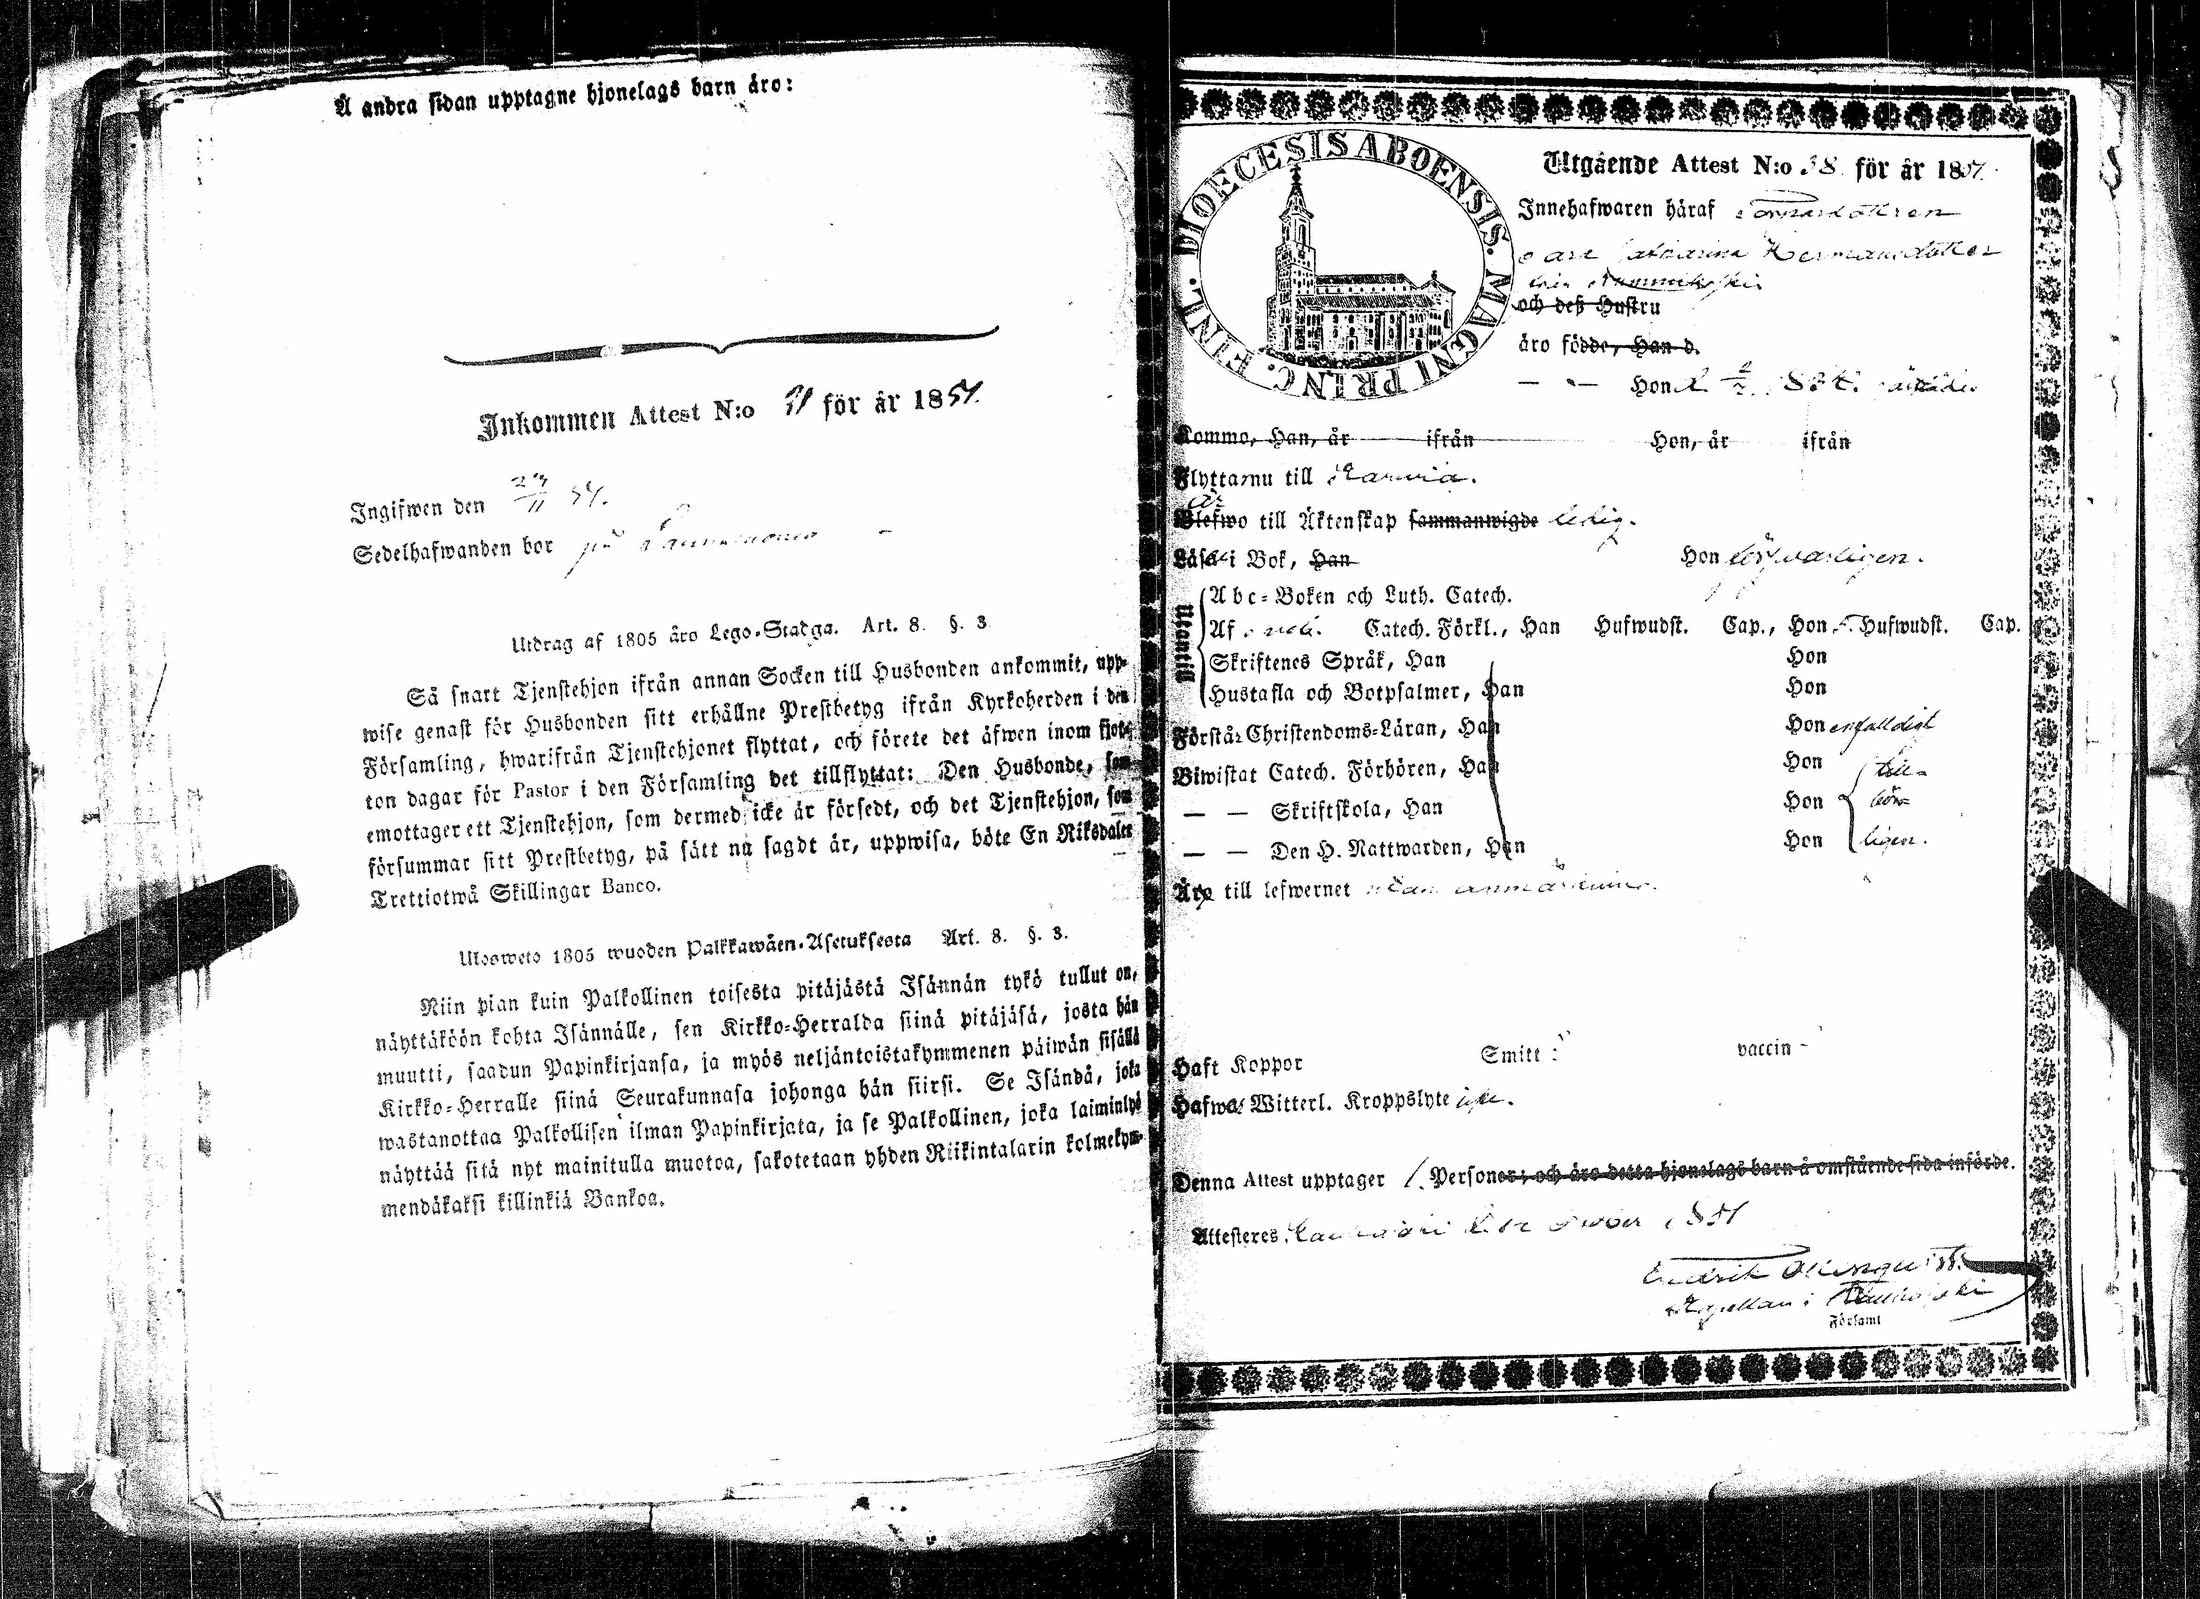 Å andra sidan upptagne hjonelags barn äro:
Inkommen Attest N:o 31 för år 1851.
Ingifwen den 23/11 51.
Sedelhafwanden bor på
Utdrag af 1805 års Lego-Stadga. Art. 8. §. 3
Så snart Tjenstehjon ifrån annan Socken till Husbonden ankommit, upp-
wise genast för Husbonden sitt erhållne Prestbetyg ifrån Kyrkoherden i den
Församling, hwarifrån Tjenstehjonet flyttat, och förete det äfwen inom fjor-
ton dagar för Pastor i den Församling det tillflyttat: Den Husbonde, som
emottager ett Tjenstehjon, som dermed icke är försedt, och det Tjenstehjon, som
försummar sitt Prestbetyg, på sätt nu sagdt är, uppwisa, böte En Riksdaler
Trettiotwå Skillingar Banco.
Ulosweto 1805 wuoden Palkkawäen-Asetuksesta Art. 8. §. 3.
Niin pian kuin Palkollinen toisesta pitäjästä Isännän tykö tullut on,
näyttäköön kohta Isännälle, sen Kirkko-Herralda siinä pitäjäsä, josta hän
muutti, saadun Papinkirjansa, ja myös neljäntoistakymmenen päiwän sisällä
Kirkko-Herralle siinä Seurakunnasa johonga hän siirsi. Se Isändä, joka
wastanottaa Palkollisen ilman Papinkirjata, ja se Palkollinen, joka laiminlyö
näyttää sitä nyt mainitulla muotoa, sakotetaan yhden Riikintalarin kolmekym-
mendäkaksi killinkiä Bankoa.
DIOECESIS ABOENSIS. MAGNI PRINC. FINL.
Utgående Attest N:o 38 för år 1851.
Innehafwaren häraf
Catharina Hermansdotter
och deß Hustru
äro födde, Han d.
— " — Hon d.
Komma, Han, år ifrån Hon, år ifrån
Flyttar nu till Karvia.
Är
Blefwo till Äktenskap sammanwigde ledig.
Läser i Bok, Han Hon försvarligen.
Utantill
Abc-Boken och Luth. Catech.
Af Catech. Förkl., Han Hufwudst. Cap., Hon Hufwudst. Cap.
Skriftenes Språk, Han Hon
Hustafla och Botpsalmer, Han Hon
Förstår Christendoms-Läran, Han Hon enfalldigt
Biwistat Catech. Förhören, Han Hon till-
— — Skriftskola, Han Hon bör-
— — Den H. Nattwarden, Han Hon ligen.
Är till lefwernet utan anmärkning.
Haft Koppor Smitt vaccin
Hafwa Witterl. Kroppslyte icke.
Denna Attest upptager 1. Personer; och äro detta hjonelags barn å omstående sida införde.
Attesteres 1851
Kapellan i
Församl